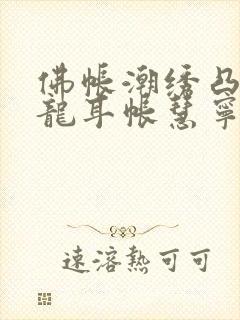 佛帳潮绣凸
龍耳帐慧寧
速溶熱可可